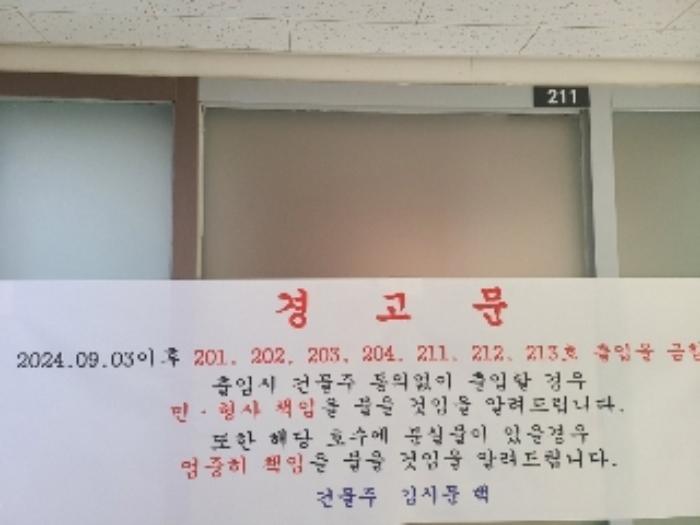 211
경 고 문
2024.09.03이후 201, 202, 203, 204, 211, 212, 213호 출입을 금
출입시 건물주 동의없이 출입할 경우
민·형사 책임을 물을 것임을 알려드립니다.
또한 해당 호수에 분실물이 있을경우
엄중히 책임을 물을 것임을 알려드립니다.
건물주 김시문 백